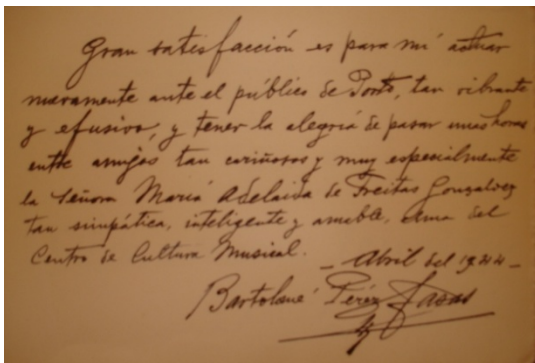 Gran satisfacción es para mí actuar
nuevamente ante el público de Porto, tan vibrante
y efusivo, y tener la alegría de pasar unas horas
entre amigos tan cariñosos y muy especialmente
la Señora María Adelaida de Freitas Gonzalvez
tan simpática, inteligente y amable, alma del
Centro de Cultura Musical.
- Abril del 1944 -
Bartolomé Pérez Casas